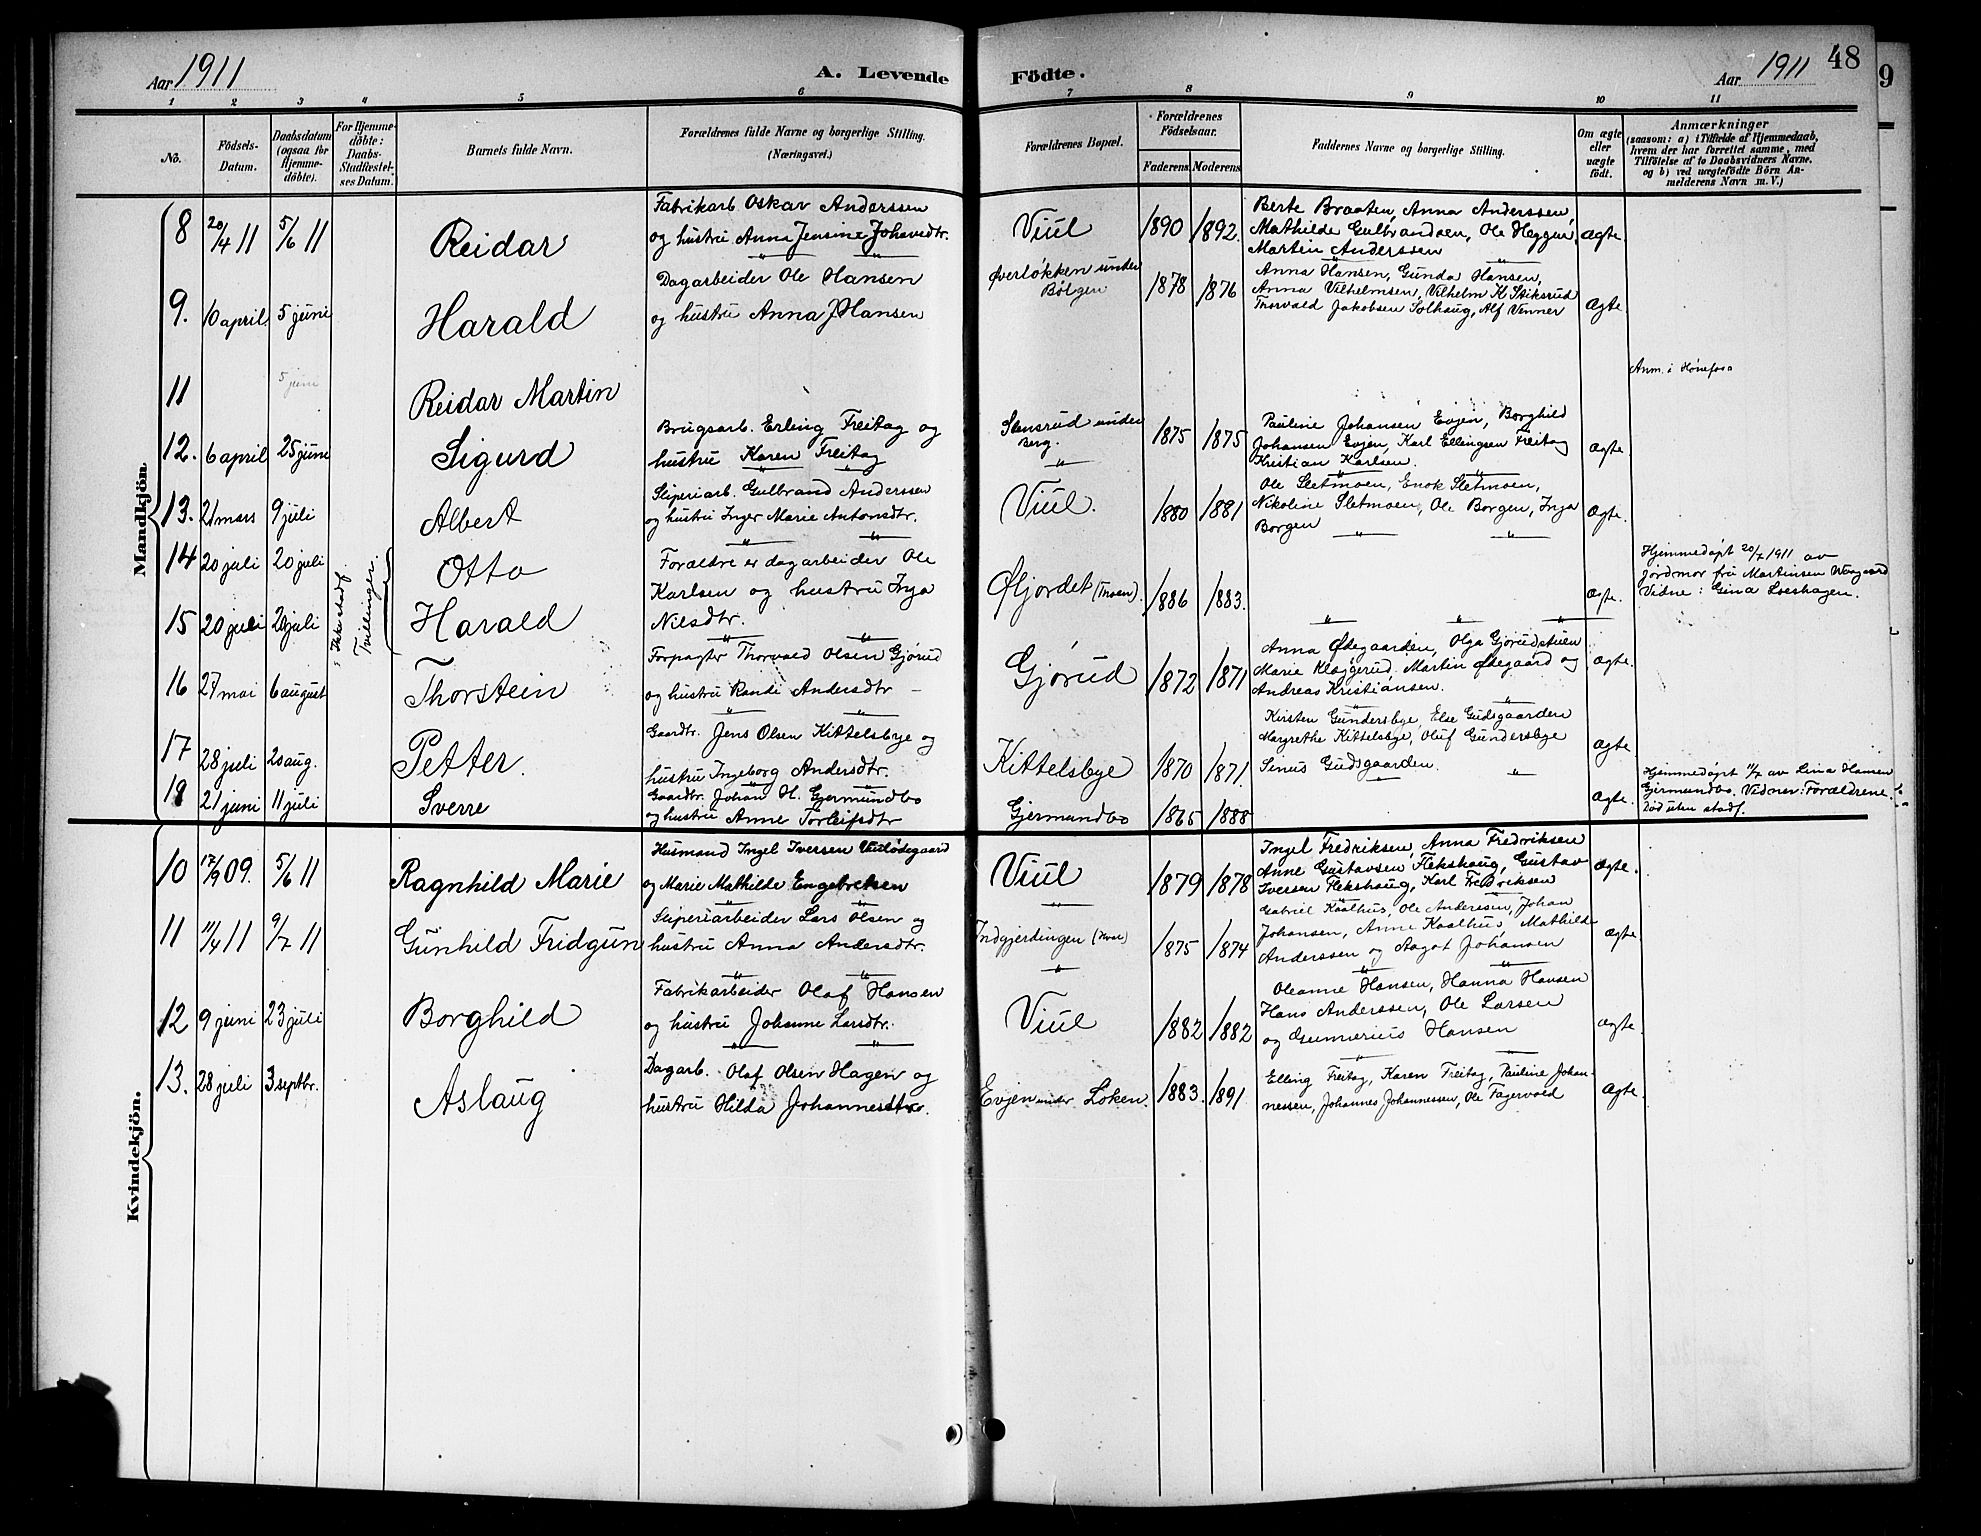 Aar 1911
A. Levende Födte.
Aar 1911
48
9
1 2 3 4 5 6 7 8 9 10 11
No.
Födsels-
Datum.
Daabsdatum
(ogsaa for
Hjemme-
döbte).
For Hjemme-
döbte:
Daabs-
Stadfæstel-
ses Datum.
Barnets fulde Navn.
Forældrenes fulde Navne og borgerlige Stilling.
(Næringsvei.)
Forældrenes Bopæl.
Forældrenes
Födselsaar.
Faderens. Moderens.
Faddernes Navne og borgerlige Stilling.
Om ægte
eller
uægte
födt.
Anmærkninger
(saasom: a) i Tilfælde af Hjemmedaab,
hvem der har forrettet samme, med
Tilföielse af to Daabsvidners Navne,
og b) ved uægtefödte Börn An-
melderens Navn m. V.)
Mandkjön.
8 20/4 11 5/6 11 Reidar
Fabrikarb Oskar Anderssen
og hustru Anna Jensine Johavedtr.
Viul 1890 1892.
Berte Braaten, Anna Anderssen,
Mathilde Gulbrandsen, Ole Heggen,
Martin Anderssen
Ægte.
9. 10 april 5 juni Harald
Dagarbeider Ole Hansen
og hustru Anna J Hansen
Øverløkken under
Bölgen
1878 1876
Anna Hansen, Gunda Hansen,
Anna Vilhelmsen, Vilhelm K Stiksrud
Thorvald Jakobsen Solhaug, Alf Venner
Ægte.
11 5 juni Reidar Martin
Anm. i Hönefoss
12. 6 april 25 juni Sigurd
Brugsarb. Erling Freitag og
hustru Karen Freitag
Stensrud under
Berg.
1875 1875
Pauline Johansen Evjen, Borghild
Johansen Evjen, Karl Ellingsen Freitag
Kristian Karlsen.
Ægte.
13. 21 mars 9 juli Albert
Sliperiarb. Gulbrand Anderssen
og hustru Inger Marie Antonsdtr.
Viul. 1880 1881
Ole Sletmoen, Enok Sletmoen,
Nikoline Sletmoen, Ole Borgen, Inga
Borgen
Ægte.
14 20 juli 20 juli Otto
Forældre er dagarbeider Ole
Karlsen og hustru Inga
Nilsdtr.
Øfjordet (Thoen). 1886 1883.
Ægte.
Hjemmedøpt 20/7 1911 av
jordmor fru Martinsen
Vidne: Gina Loeshagen.
15 20 juli 20 juli Harald
Ikke stadf.
Tvillinger.
16 27 mai 6 august Thorstein
Forpagter Thorvald Olsen Gjörud
og hustru Randi Andersdtr
Gjörud 1872 1871
Anna Ødegaarden, Olga Gjörudstuen
Marie Klæggerud, Martin Ødegaard og
Andreas Kristiansen.
Ægte.
17 28 juli 20 aug. Petter.
Gaardbr. Jens Olsen Kittelsbye og
hustru Ingeborg Andersdtr.
Kittelsbye 1870 1871.
Kirsten Gundersbye, Else Gudsgaarden
Margrethe Kittelsbye, Oluf Gundersbye
Sinus Gudsgaarden.
Ægte
18 21 juni 11 juli Sverre
Gaardbr. Johan H. Gjermundbo
og hustru Anne Torleifsdtr
Gjermundbo 1865 1888
Ægte.
Hjemmedøpt 11/7 av Lina Hansen
Gjermundbo. Vidner: Forældrene.
Död uten stadf.
Kvindekjön.
10 17/9 09. 5/6 11 Ragnhild Marie
Husmand Ingel Iversen Viulödegaard
og Marie Mathilde Engebretsen
Viul 1879 1878
Ingel Fredriksen, Anna Fredriksen
Anne Gustavsen Flekshaug, Gustav
Iversen Flekshaug, Karl Fredriksen
Ægte.
11 11/4 11 9/7 11 Gunhild Fridgun
Sliperiarbeider Lars Olsen og
hustru Anna Andersdtr.
Indgjerdingen (Hval) 1875 1874
Gabriel Kaalhus, Ole Andersen, Johan
Johansen, Anne Kaalhus, Mathilde
Anderssen og Aagot Johansen
Ægte
12 9 juni 23 juli Borghild
Fabrikarbeider Olaf Hansen
og hustru Johanne Larsdtr.
Viul 1882 1882
Oleanne Hansen, Hanna Hansen
Hans Anderssen, Ole Larsen
og Gunnerius Hansen
Ægte.
13. 28 juli 3 septbr. Aslaug
Dagarb. Olaf Olsen Hagen og
hustru Hilda Johannesdtr.
Evjen under Loken. 1883. 1891
Elling Freitag, Karen Freitag, Pauline Johan-
nessen, Johannes Johannessen, Ole Fagervold
Ægte.